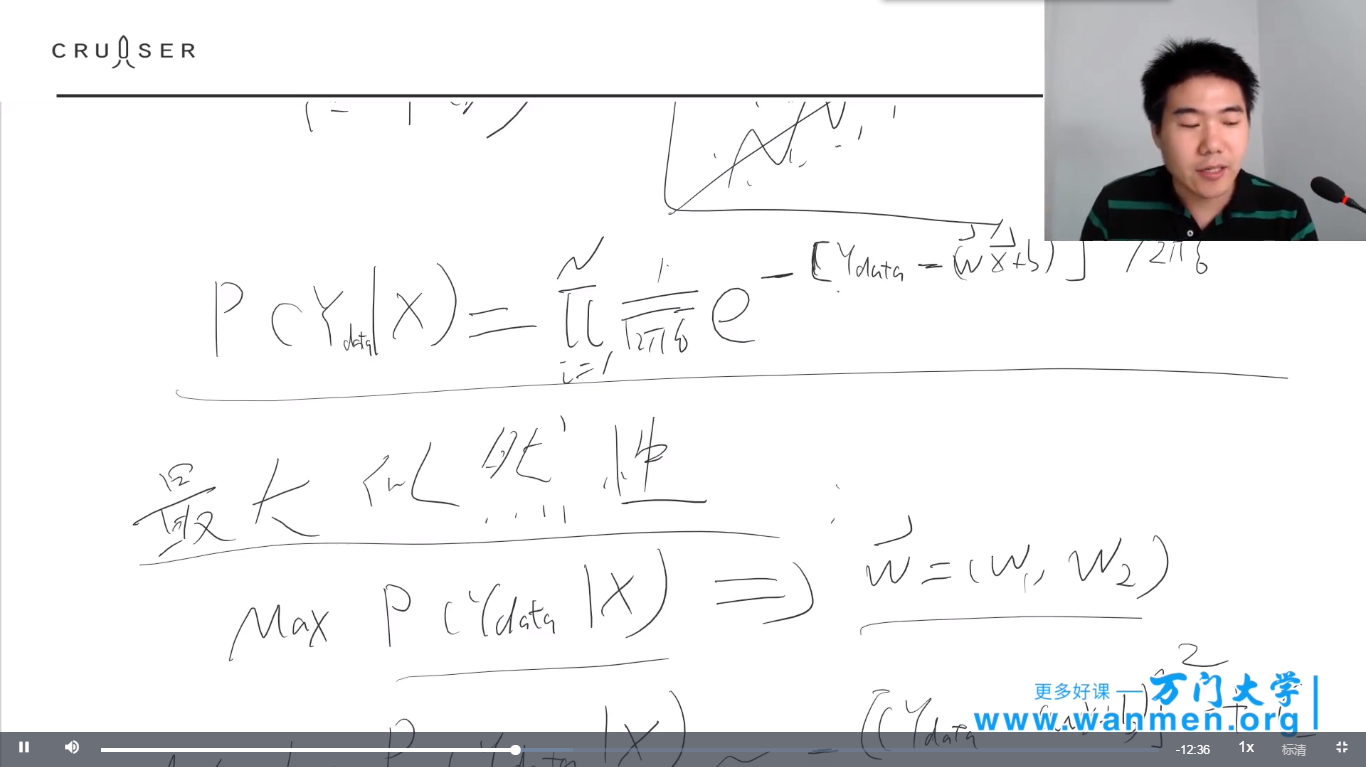 CRUISER
P(Y_data|X) = ∏_{i=1}^{N} 1/√2πσ e^{-[Y_data - (w⃗x⃗+b)] /2πσ}
最大似然性
Max P(Y_data|X) ⇒ w⃗ = (W₁, W₂)
P(Y_data|X) ~ - [(Y_data
2
更多好课 — 万门大学
www.wanmen.org
-12:36 1x 标清